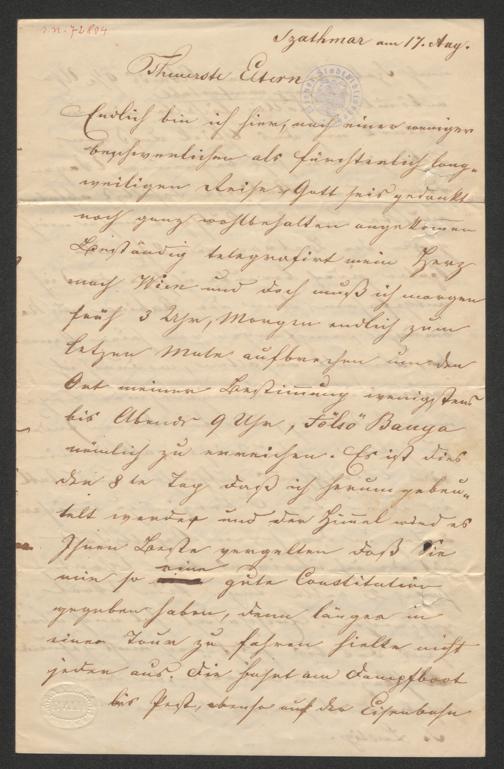 I. N. 72894
Szathmar am 17. Aug.
Theuerste Eltern
Endlich bin ich hier, nach einer weniger
beschwerlichen als fürchterlich lang-
weiligen Reise, Gott seis gedankt
noch ganz wohlbehalten angekommen
Beständig telegrafirt mein Herz
nach Wien und doch muß ich morgen
früh 3 Uhr, Morgen endlich zum
letzen Male aufbrechen um den
Ort meiner Bestimmung wenigstens
bis Abends 9 Uhr, Felsö Banya
nämlich zu erreichen. Es ist dies
der 8te Tag daß ich herum gebeu-
telt werde und der Himmel wird es
Ihnen Beste vergelten daß Sie
mir so eine gute Constitution
gegeben haben, denn länger in
einer Tour zu fahren hielte nicht
jeder aus. Die Fahrt am Dampfboot
bis Pest, ebenso auf der Eisenbahn